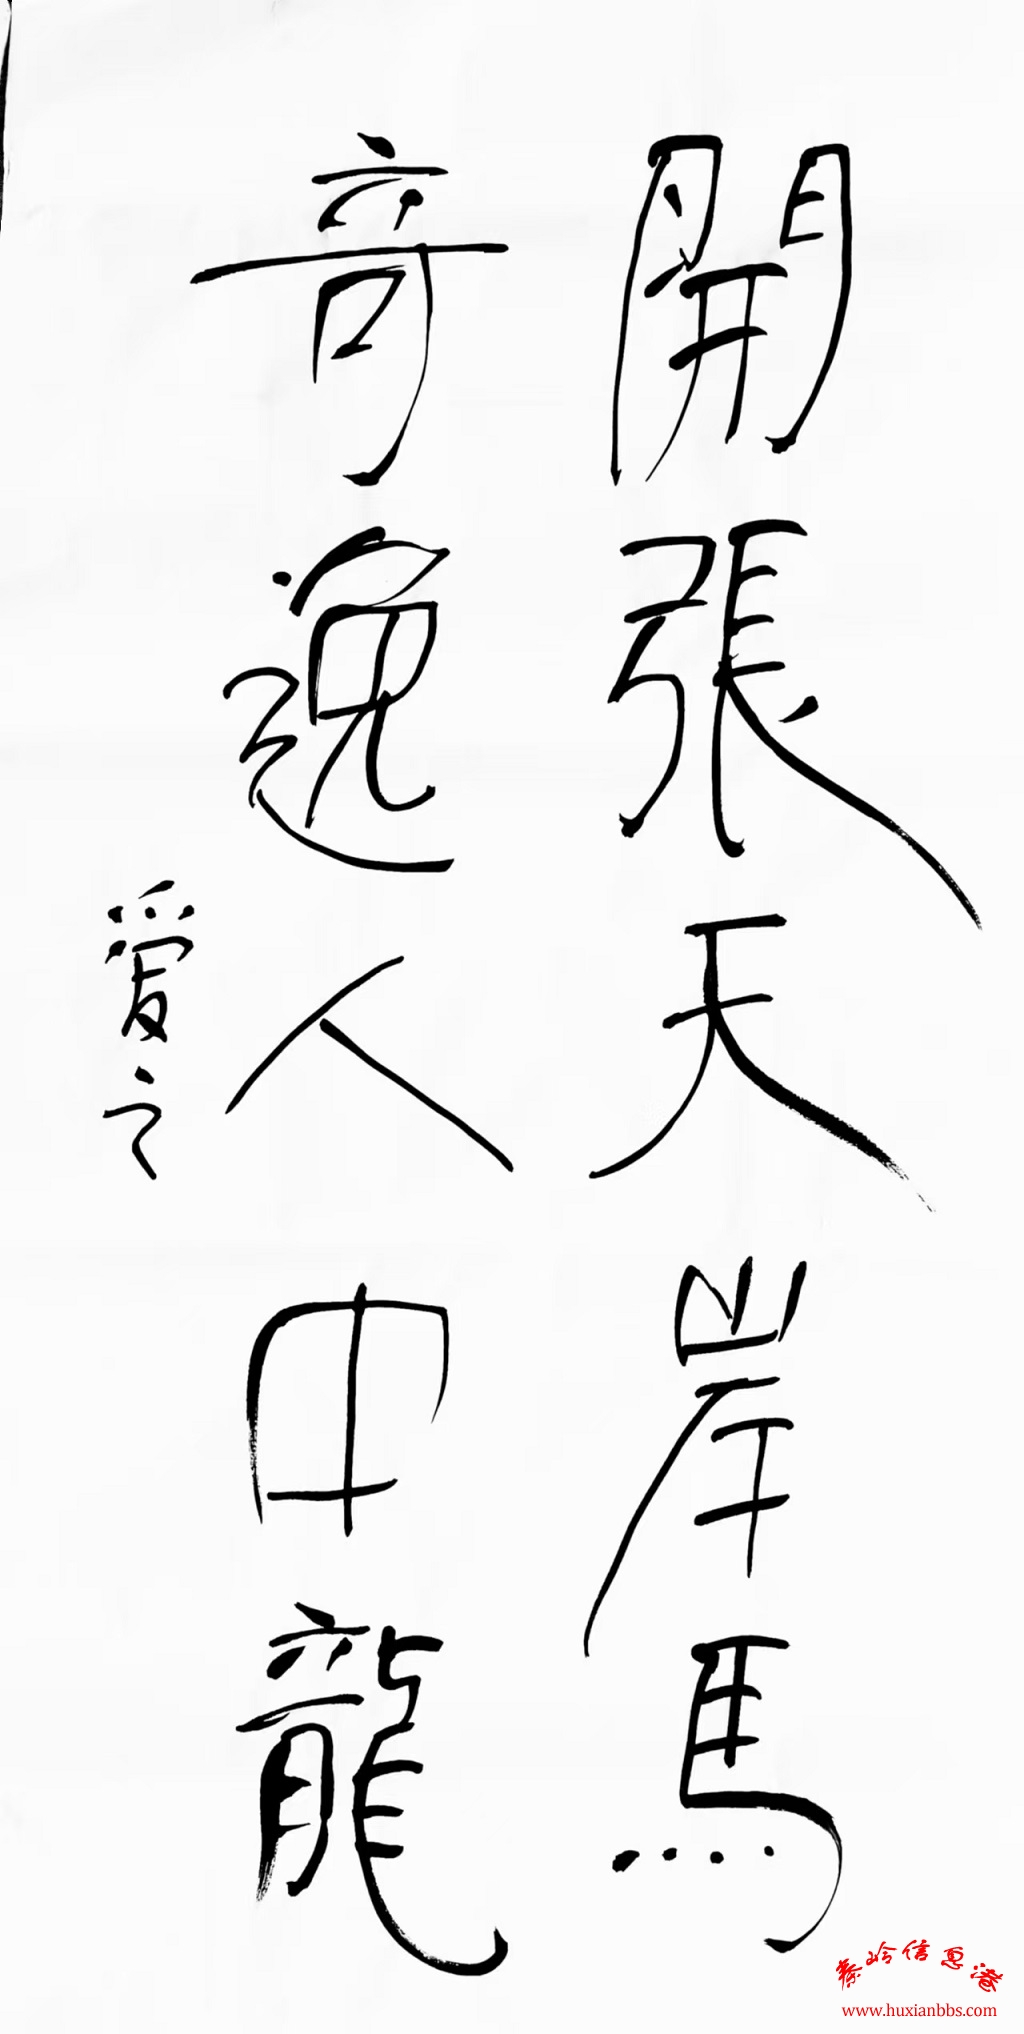 開張天岸馬
奇逸人中龍
爱之
秦岭信息港
www.huxianbbs.com